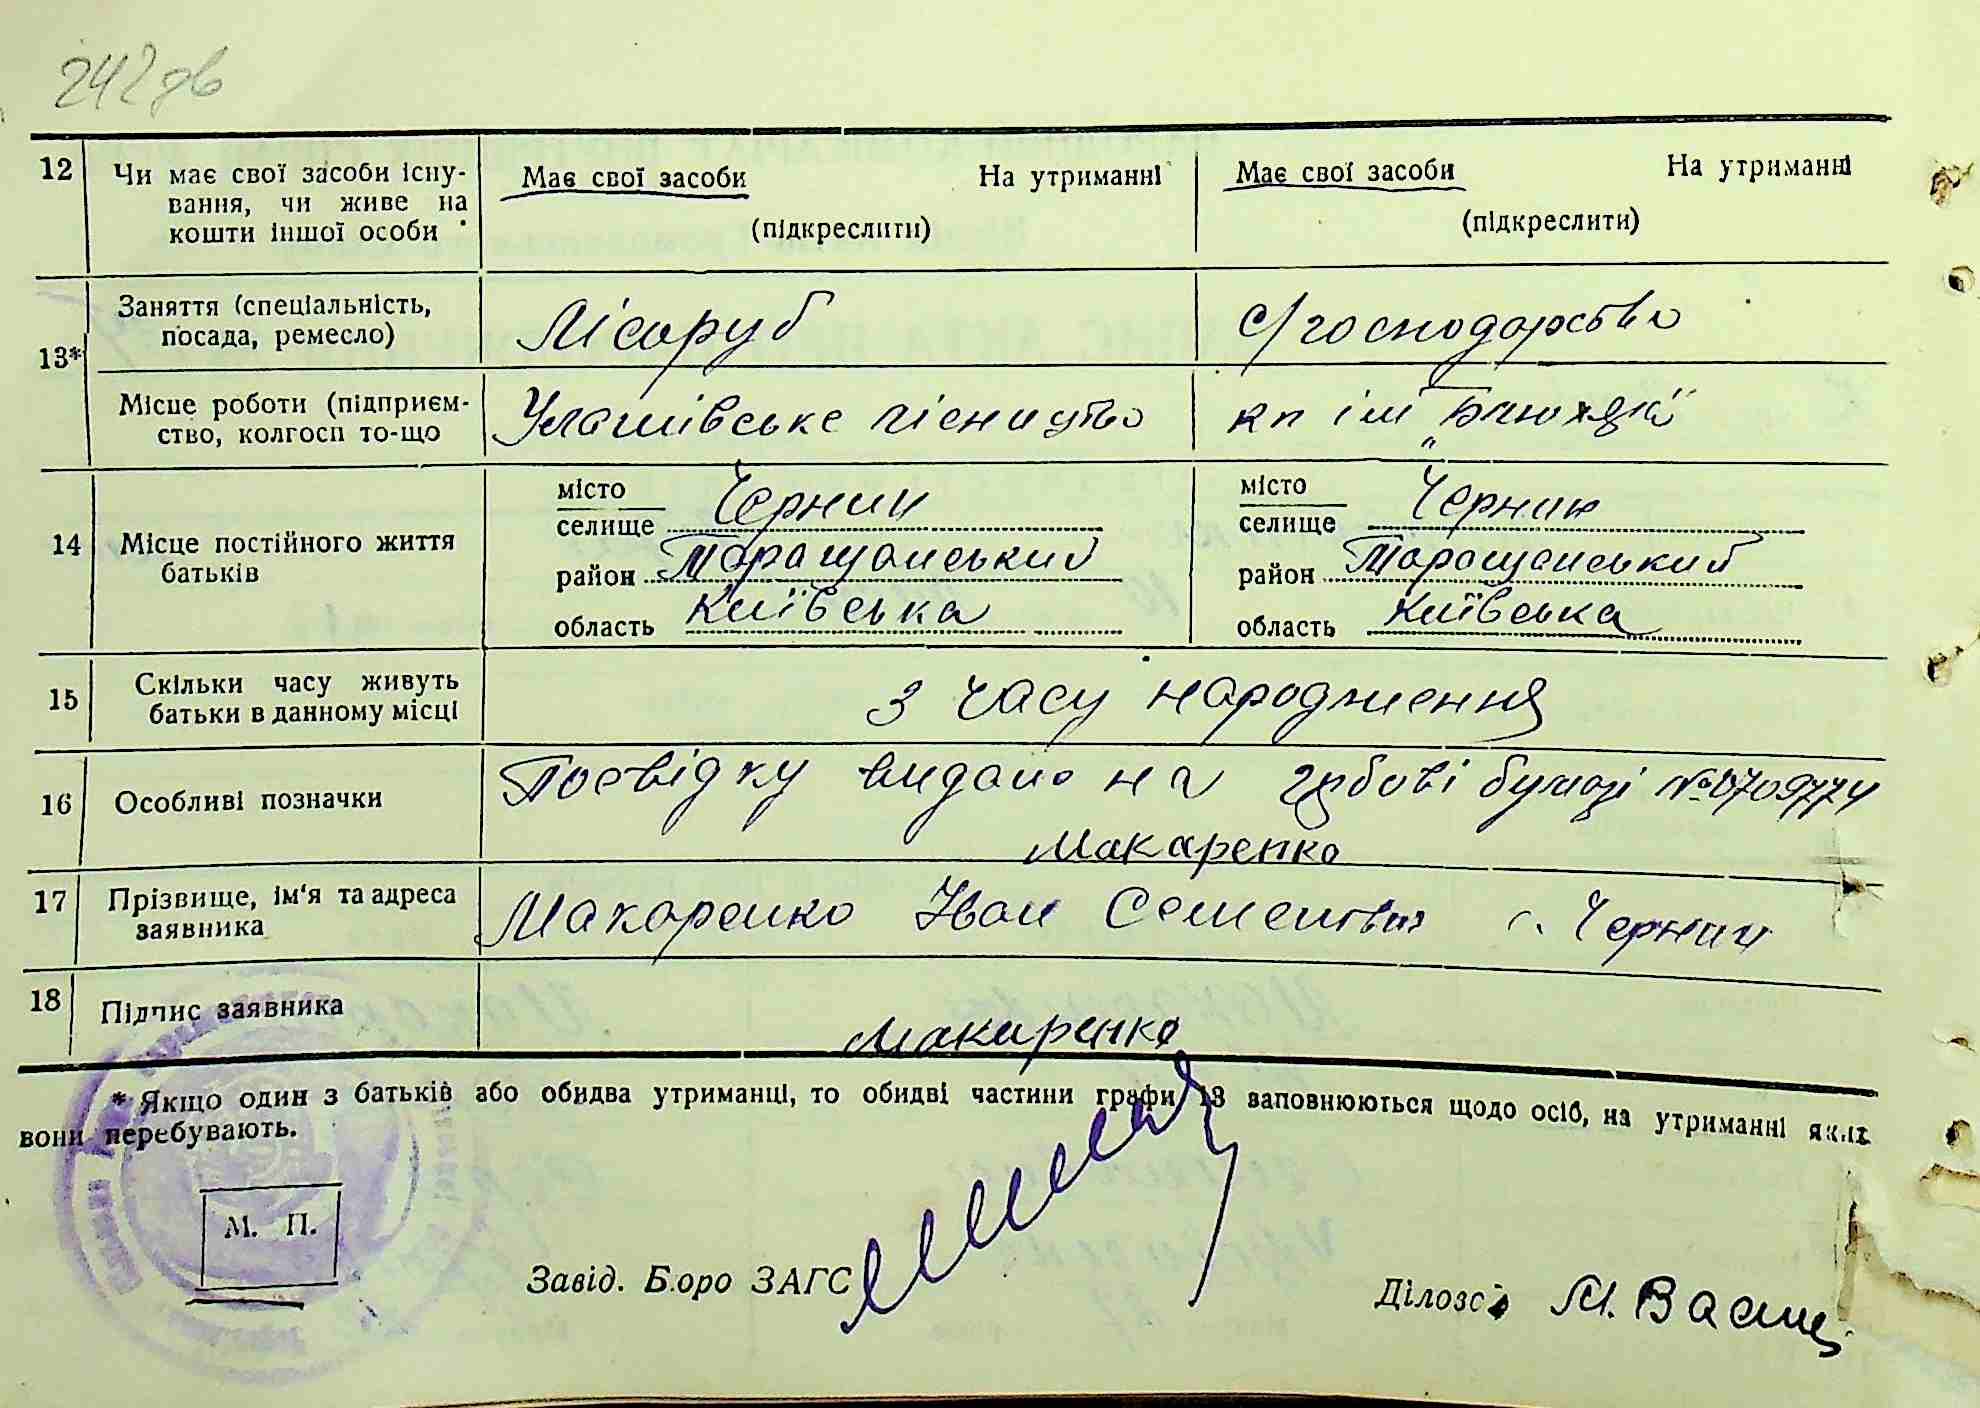 242 дв
12 Чи має свої засоби існу-
вання, чи живе на
кошти іншої особи
Має свої засоби На утриманні
(підкреслити)
Має свої засоби На утриманні
(підкреслити)
13*
Заняття (спеціальність,
посада, ремесло)
Лісоруб
с/господарство
Місце роботи (підприєм-
ство, колгосп то-що
лісництво
кп ім
14 Місце постійного життя
батьків
місто
селище Чернин
район Таращанський
область Київська
місто
селище Чернин
район Таращанський
область Київська
15 Скільки часу живуть
батьки в данному місці
З часу народження
16 Особливі позначки
Посвідку видано на гербові бумазі
Макаренко
17 Прізвище, ім'я та адреса
заявника
Макаренко Іван Семенович с. Чернин
18 Підпис заявника
Макаренко
* Якщо один з батьків або обидва утриманці, то обидві частини графи 13 заповнюються щодо осіб, на утриманні яких
вони перебувають.
М. П.
Завід. Бюро ЗАГС
Діловод М.